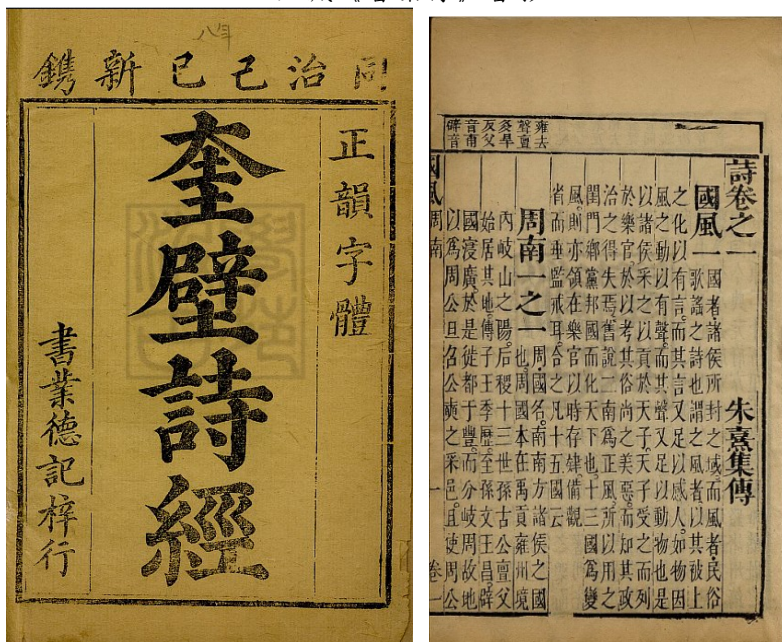 八年
同治己巳新鐫
正韻字體
奎壁詩經
書業德記梓行
雍去
聲亶
多旱
反父
音甫
辟音
詩卷之一　朱熹集傳
國風一　國者諸侯所封之域而風者民俗
歌謠之詩也謂之風者以其被上
之化以有言而其言又足以感人如物因
風之動以有聲而其聲又足以動物也是
以諸侯采之以貢於天子天子受之而列
於樂官於以考其俗尚之美惡而知其政
治之得失焉舊說二南爲正風所以用之
閨門鄉黨邦國而化天下也十三國爲變
風則亦領在樂官以時存肄備觀
省而垂監戒耳合之凡十五國云
周南一之一　周國名南南方諸侯之國
也周國本在禹貢雍州境
內岐山之陽后稷十三世孫古公亶父
始居其地傳子王季歷至孫文王昌辟
國寖廣於是徙都于豐而分岐周故地
以爲周公旦召公奭之采邑且使周公
國風　周南　一　卷一